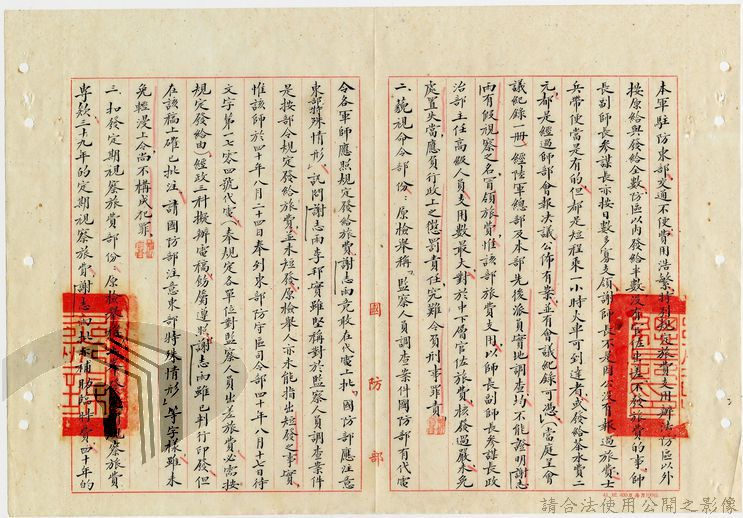 本軍駐防東部交通不便費用浩繁特別規定旅費支用辦法防區以外
按原給與發給全數防區以內發給半數沒有官佐出差不發旅費的事師
長副師長參謀長亦按日數多寡支領謝師長不是因公沒有報過旅費士
兵帶便當是有的但都是短程乘一小時火車可到達者或發給茶水費二
元都是經過師部會報決議公佈有案並有會議紀錄可憑（當庭呈會
議紀錄一冊）經陸軍總部及本部先後派員實地調查均不能證明謝志
雨有假視察之名冒領旅費惟該部旅費支用以師長副師長參謀長政
治部主任高級人員支用數最大對於中下層官佐旅費核發過嚴未免
處置失當應負行政上之懲罰責任究難令負刑事罪責
二、藐視命令部份：原檢舉稱「監察人員調查案件國防部有代電
令各軍師應照規定發給旅費謝志雨竟敢在代電上批「國防部應注意
東部特殊情形」訊問謝志雨李邦實雖堅稱對於監察人員調查案件
是按部令規定發給旅費並未短發原檢舉人亦未能指出短發之事實
惟該師於四十年八月二十四日奉列東部防守區司令部四十年八月十七日待
文字第一七零四號代電（奉規定各單位對監察人員出差旅費必需按
規定發給由）經政三科擬辦電稿飭屬遵照謝志雨雖已判行印發但
在該稿上確已批注「請國防部注意東部特殊情形」等字樣雖未
免輕漫上令尚不構成犯罪
三、扣發定期視察旅費部份：原檢舉視察旅費
專款三十九年的定期視察旅費謝志雨補助臨特費四十年的
國防部
請合法使用公開之影像